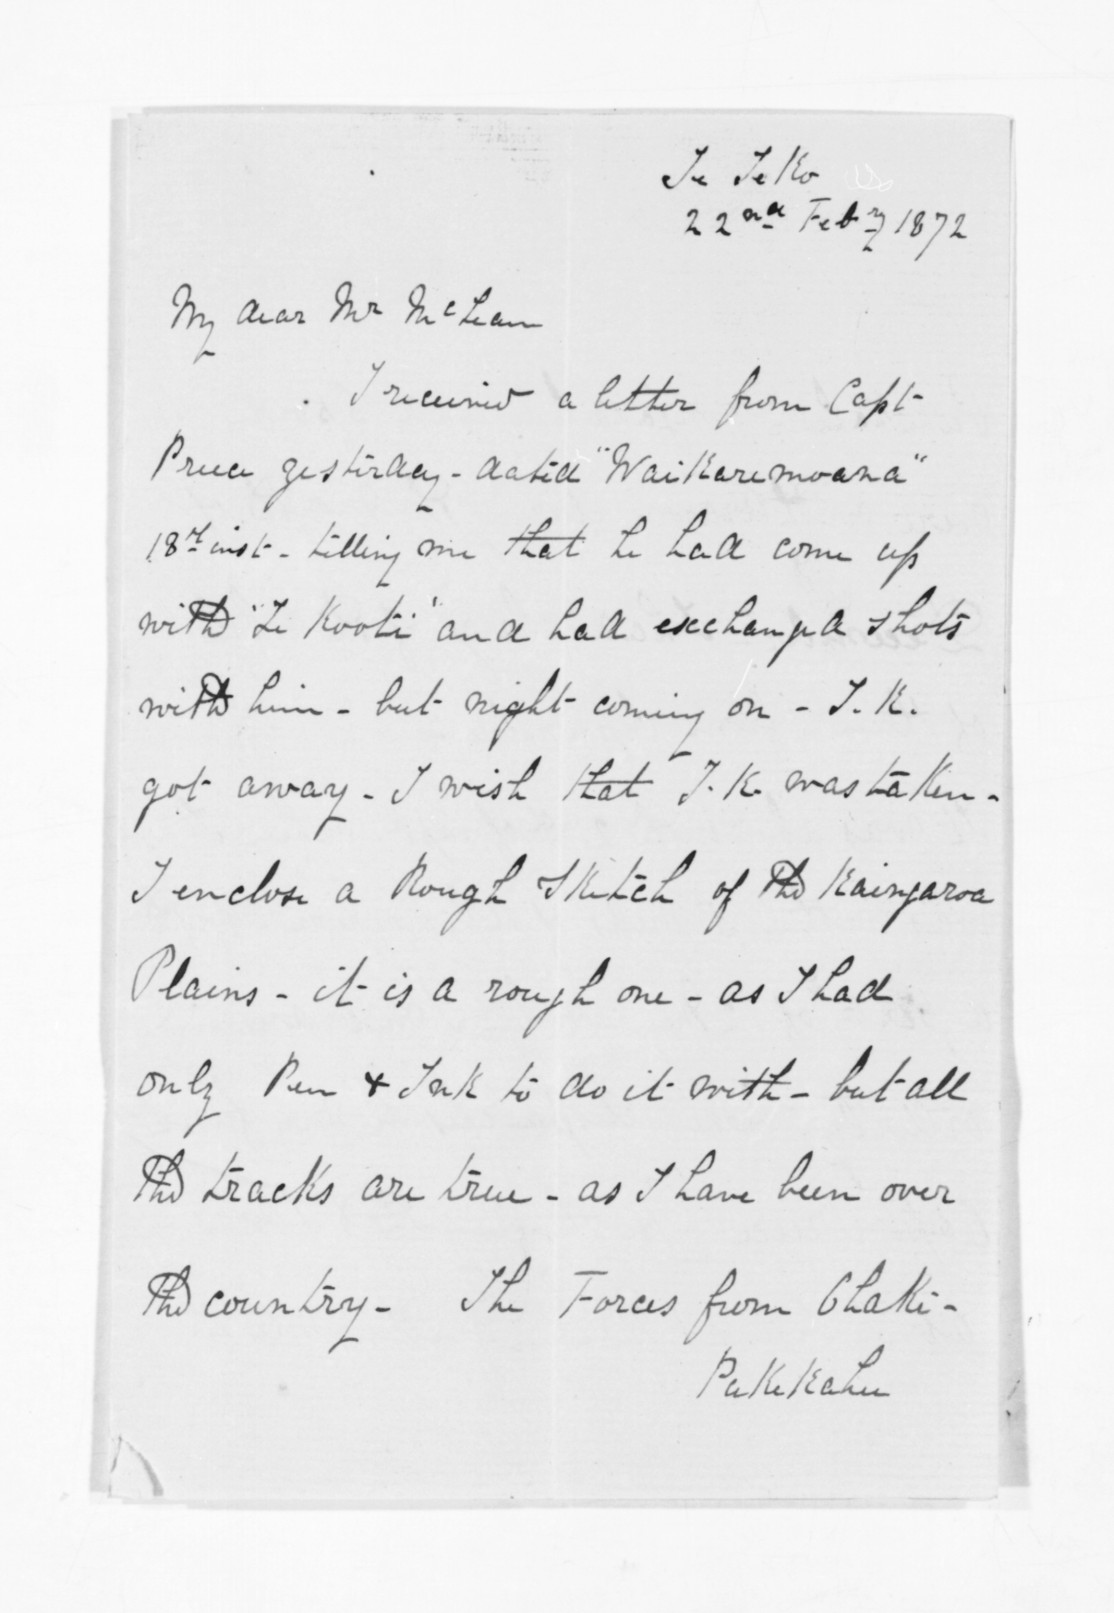 Te Teko
22nd Feby 1872
My dear Mr McLean
I received a letter from Capt
Preece yesterday - dated "Waikaremoana"
18th inst - telling me that he had come up
with "Te Kooti" and had exchanged shots
with him - but night coming on - T.K.
got away - I wish that T.K. was taken -
I enclose a Rough Sketch of the Kaingaroa
Plains - it is a rough one - as I had
only Pen & Ink to do it with - but all
the tracks are true - as I have been over
the country - The Forces from Ohaki -
Pukekahu